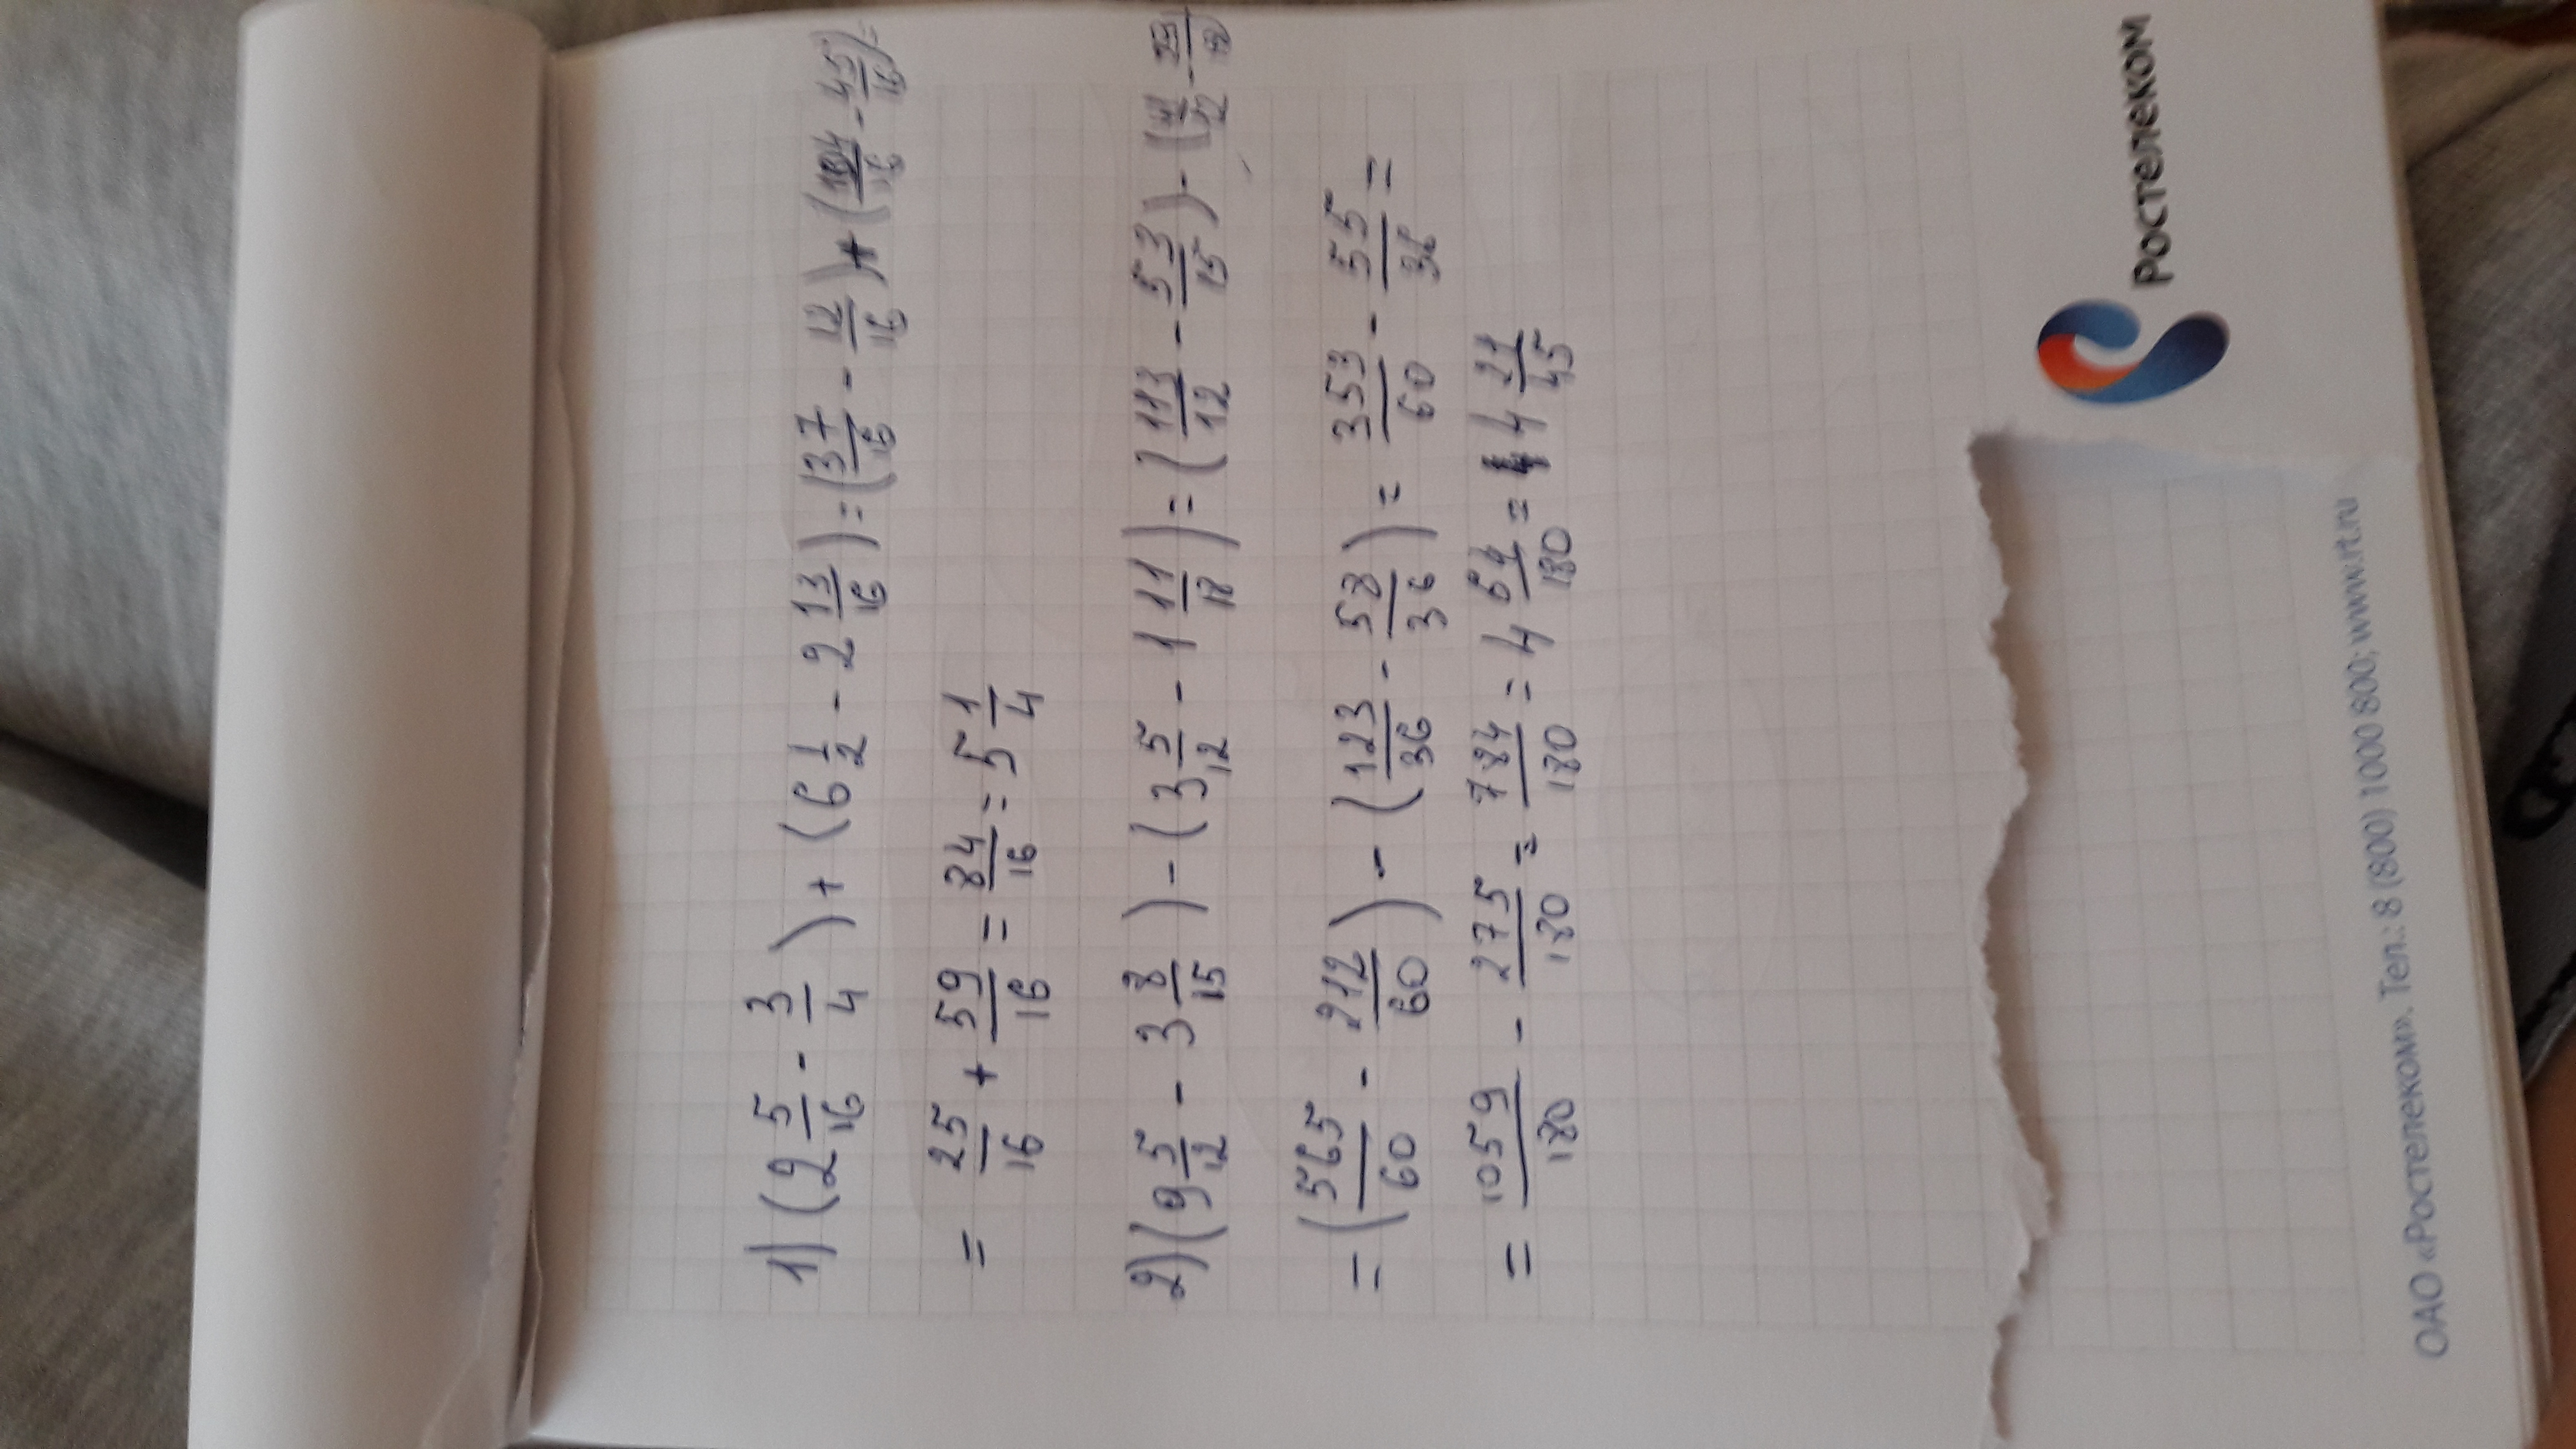 1) (2 5/16 - 3/4) + (6 1/2 - 2 13/16) = (37/16 - 12/16) + (104/16 - 45/16) =
= 25/16 + 59/16 = 84/16 = 5 1/4
2) (9 5/12 - 3 8/15) - (3 5/12 - 1 11/18) = (113/12 - 53/15) - (41/12 - 29/18
= (565/60 - 212/60) - (123/36 - 58/36) = 353/60 - 55/36 =
= 1059/180 - 275/180 = 784/180 = 4 64/180 = 4 21/45
Ростелеком
ОАО «Ростелеком». Тел.: 8 (800) 1000 800; www.rt.ru